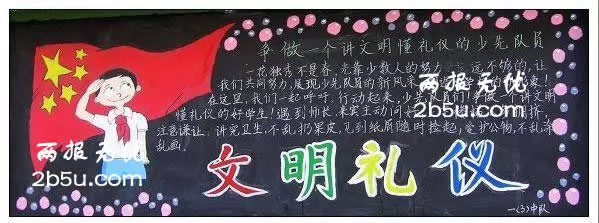 争做一个讲文明懂礼仪的少先队员
一花独秀不是春,光靠少数人的努力 远不够的,让
我们共同努力,展现少先队员的新风采
在这里,我们一起呼吁,行动起来,少先队员们!争做一个讲文明
懂礼仪的好学生!遇到师长、来宾主动问好
注意谦让。讲究卫生,不乱扔果皮,见到纸屑随时捡起,爱护公物,不乱涂
乱画。
文明礼仪
一(3)中队
两报无忧
2b5u.com
两报无忧
2b5u.com